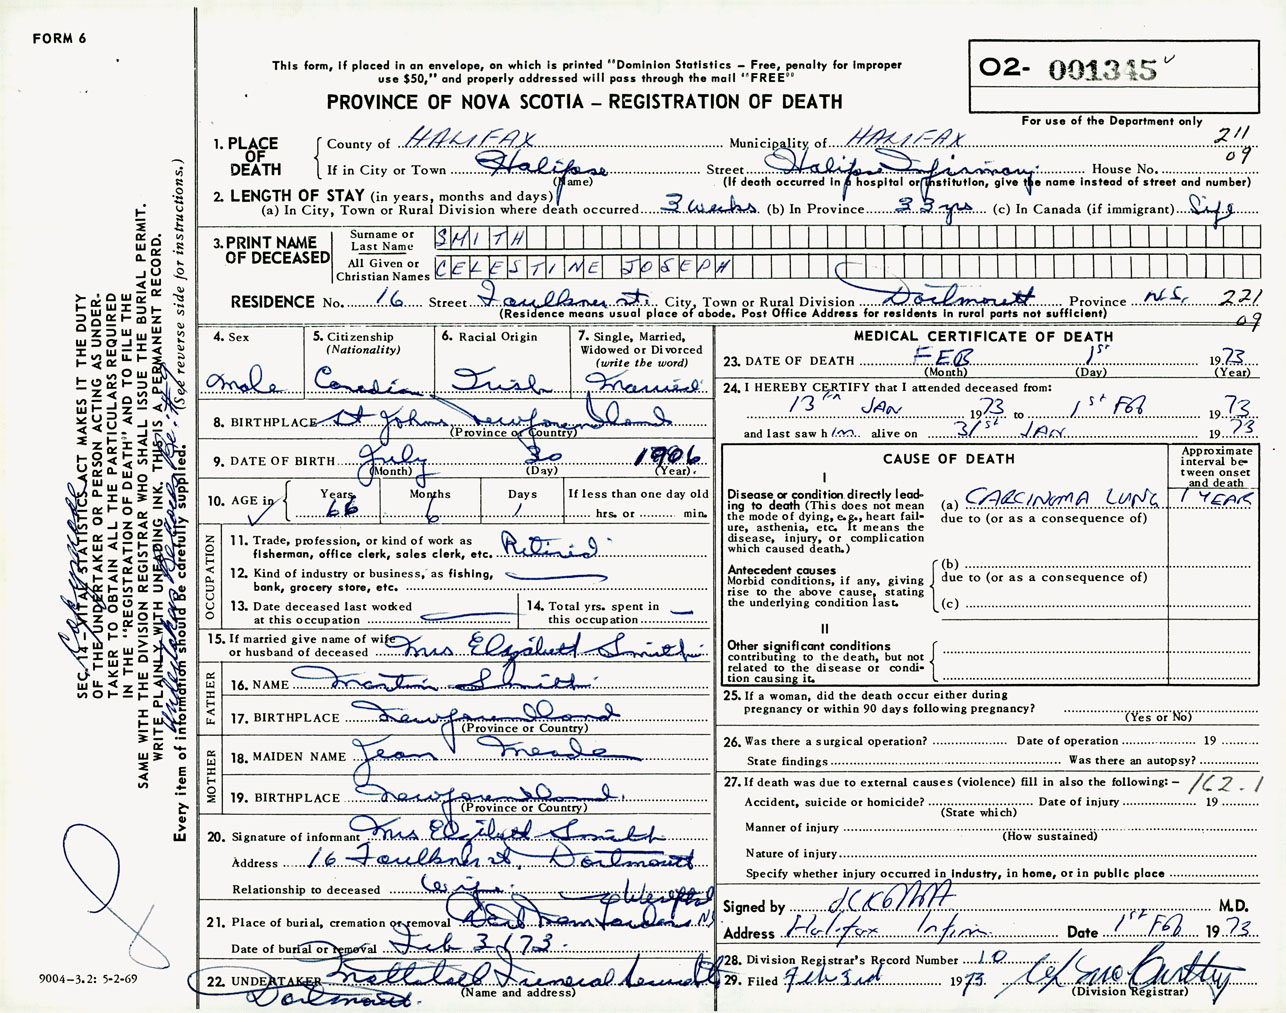 FORM 6
This form, if placed in an envelope, on which is printed "Dominion Statistics – Free, penalty for improper
use $50," and properly addressed will pass through the mail "FREE"
O2- 001345
PROVINCE OF NOVA SCOTIA – REGISTRATION OF DEATH
For use of the Department only
1. PLACE OF DEATH
County of HALIFAX Municipality of HALIFAX 211
09
If in City or Town Halifax Street Halifax Infirmary House No.
(Name) (If death occurred in a hospital or institution, give the name instead of street and number)
2. LENGTH OF STAY (in years, months and days)
(a) In City, Town or Rural Division where death occurred 3 weeks (b) In Province 33 yrs (c) In Canada (if immigrant) Life
3. PRINT NAME OF DECEASED
Surname or Last Name SMITH
All Given or Christian Names CELESTINE JOSEPH
RESIDENCE No. 16 Street Faulkner st. City, Town or Rural Division Dartmouth Province N.S. 221
09
(Residence means usual place of abode. Post Office Address for residents in rural parts not sufficient)
4. Sex
Male
5. Citizenship
(Nationality)
Canadian
6. Racial Origin
Irish
7. Single, Married,
Widowed or Divorced
(write the word)
Married
8. BIRTHPLACE St Johns Newfoundland
(Province or Country)
9. DATE OF BIRTH July 30 1906
(Month) (Day) (Year)
10. AGE in
Years Months Days If less than one day old
66 6 1 hrs. or min.
OCCUPATION
11. Trade, profession, or kind of work as
fisherman, office clerk, sales clerk, etc. Retired
12. Kind of industry or business, as fishing,
bank, grocery store, etc.
13. Date deceased last worked
at this occupation
14. Total yrs. spent in
this occupation
15. If married give name of wife
or husband of deceased Mrs Elizabeth Smith
FATHER
16. NAME Martin Smith
17. BIRTHPLACE Newfoundland
(Province or Country)
MOTHER
18. MAIDEN NAME Jean Meade
19. BIRTHPLACE Newfoundland
(Province or Country)
20. Signature of informant Mrs Elizabeth Smith
Address 16 Faulkner st, Dartmouth
Relationship to deceased Wife
21. Place of burial, cremation or removal Dartmouth NS
Date of burial or removal Feb 3/73
22. UNDERTAKER Funeral
Dartmouth
(Name and address)
MEDICAL CERTIFICATE OF DEATH
23. DATE OF DEATH FEB 1st 1973
(Month) (Day) (Year)
24. I HEREBY CERTIFY that I attended deceased from:
13th JAN 1973 to 1st FEB 1973
and last saw him alive on 31st JAN 1973
CAUSE OF DEATH
Approximate
interval be-
tween onset
and death
I
Disease or condition directly lead-
ing to death (This does not
mean the mode of dying, e.g., heart fail-
ure, asthenia, etc. It means the
disease, injury, or complication
which caused death.)
(a) CARCINOMA LUNG 1 YEAR
due to (or as a consequence of)
Antecedent causes
Morbid conditions, if any, giving
rise to the above cause, stating
the underlying condition last.
(b)
due to (or as a consequence of)
(c)
II
Other significant conditions
contributing to the death, but not
related to the disease or condi-
tion causing it.
25. If a woman, did the death occur either during
pregnancy or within 90 days following pregnancy?
(Yes or No)
26. Was there a surgical operation? Date of operation 19
State findings Was there an autopsy?
27. If death was due to external causes (violence) fill in also the following: – 162.1
Accident, suicide or homicide? Date of injury 19
(State which)
Manner of injury
(How sustained)
Nature of injury
Specify whether injury occurred in industry, in home, or in public place
Signed by M.D.
Address Halifax Infirm Date 1st FEB 1973
28. Division Registrar's Record Number 10
29. Filed Feb 3rd 1973
(Division Registrar)
SEC. 14 – VITAL STATISTICS ACT MAKES IT THE DUTY
OF THE UNDERTAKER OR PERSON ACTING AS UNDER-
TAKER TO OBTAIN ALL THE PARTICULARS REQUIRED
IN THE "REGISTRATION OF DEATH" AND TO FILE THE
SAME WITH THE DIVISION REGISTRAR WHO SHALL ISSUE THE BURIAL PERMIT.
WRITE PLAINLY WITH UNFADING INK. THIS IS A PERMANENT RECORD.
Every item of information should be carefully supplied. (See reverse side for instructions.)
9004-3.2: 5-2-69